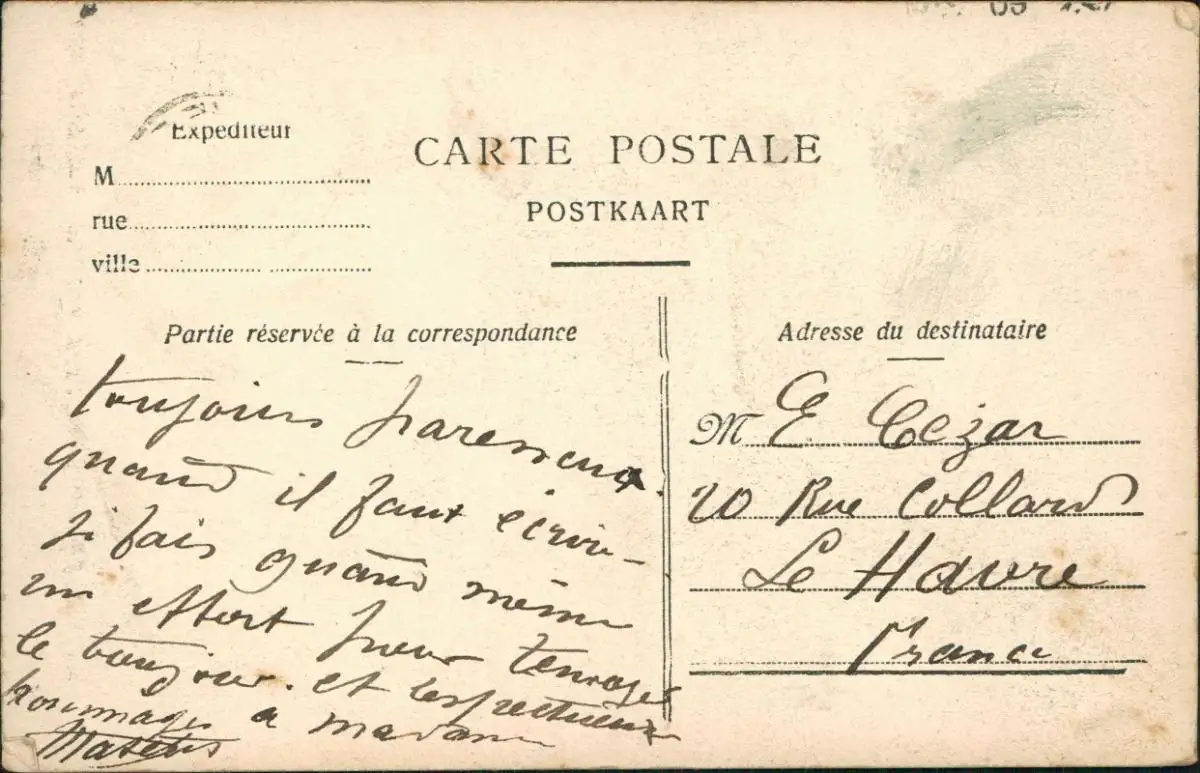 Expéditeur
M
rue
ville
CARTE POSTALE
POSTKAART
Partie réservée à la correspondance
toujours paresseux
quand il faut écrire
je fais quand même
un effort pour
le bonjour. et respectueux
hommages a madame
Adresse du destinataire
M E Cezar
20 Rue Collard
Le Havre
France